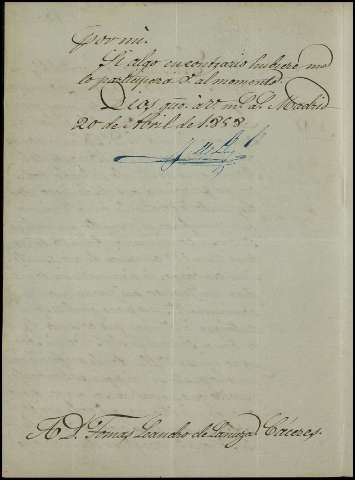 por mi.
Si algo en contrario hubiere me
lo participará V. al momento
Dios gue. á V. ms. as. Madrid
20 de Abril de 1858
A D. Tomas Leandro de Lanuza. Cáceres.